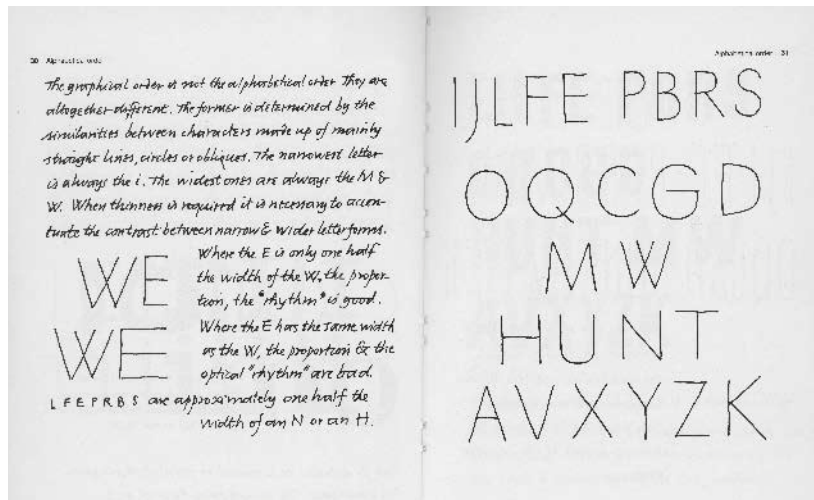 30 Alphabetical order
The graphical order is not the alphabetical order. They are
altogether different. The former is determined by the
similarities between characters made up of mainly
straight lines, circles or obliques. The narrowest letter
is always the i. The widest ones are always the M &
W. When thinness is required it is necessary to accen-
tuate the contrast between narrow & wider letterforms.
WE
Where the E is only one half
the width of the W, the propor-
tion, the "rhythm" is good.
WE
Where the E has the same width
as the W, the proportion & the
optical "rhythm" are bad.
L F E P R B S are approximately one half the
width of an N or an H.
Alphabetical order 31
IJLFE PBRS
OQCGD
MW
HUNT
AVXYZK